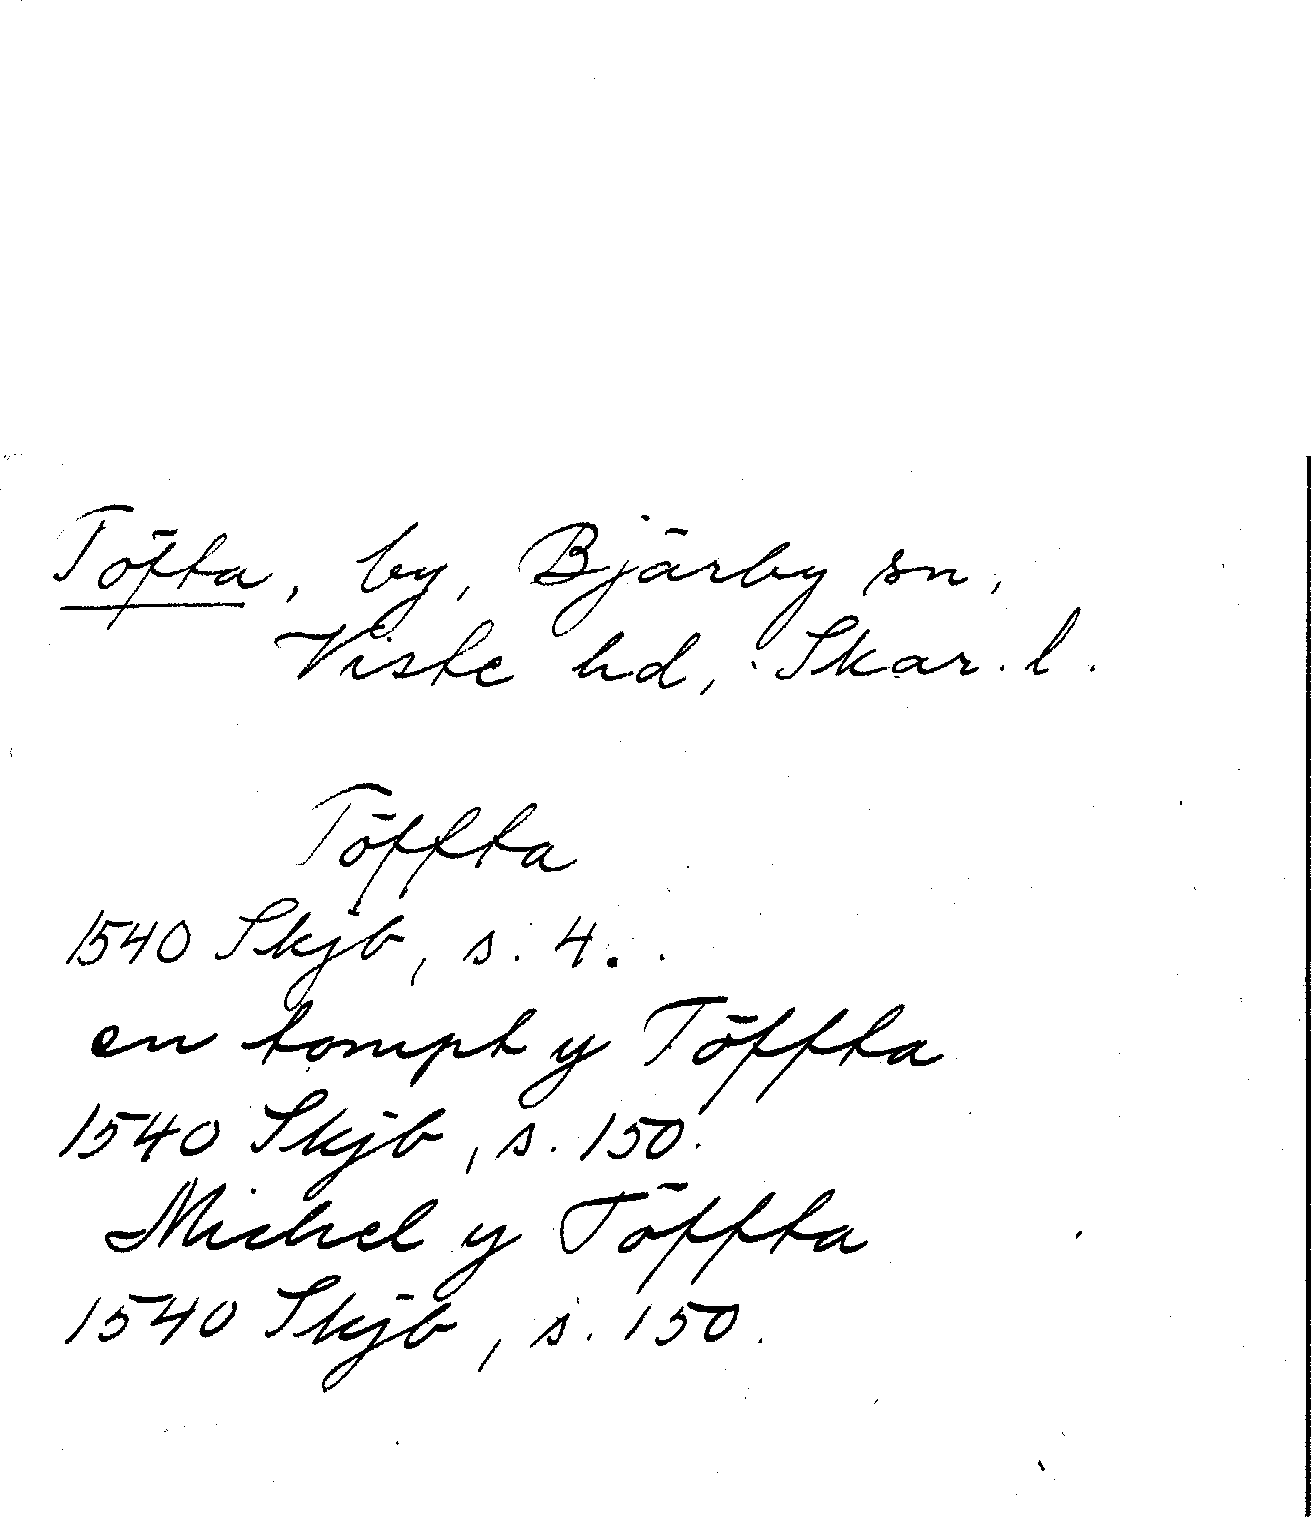 Töfta, by, Bjärby sn,
Viste hd, Skar. l.
Töffta
1540 Skjb, s. 4.
en tompt y Töffta
1540 Skjb, s. 150.
Michel y Töffta
1540 Skjb, s. 150.